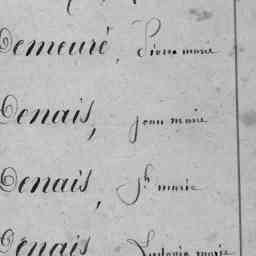 Demeuré, Pierre marie
Denais, jean marie
Denais, Jh marie
Denais marie